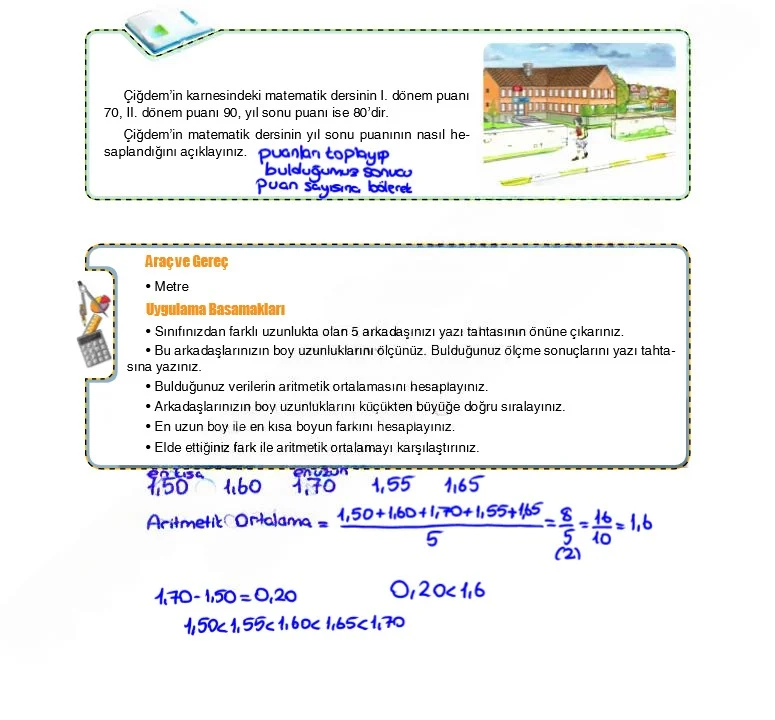 Çiğdem'in karnesindeki matematik dersinin I. dönem puanı
70, II. dönem puanı 90, yıl sonu puanı ise 80'dir.
Çiğdem'in matematik dersinin yıl sonu puanının nasıl he-
saplandığını açıklayınız. puanları toplayıp
bulduğumuz sonucu
puan sayısına bölerek
Araç ve Gereç
• Metre
Uygulama Basamakları
• Sınıfınızdan farklı uzunlukta olan 5 arkadaşınızı yazı tahtasının önüne çıkarınız.
• Bu arkadaşlarınızın boy uzunluklarını ölçünüz. Bulduğunuz ölçme sonuçlarını yazı tahta-
sına yazınız.
• Bulduğunuz verilerin aritmetik ortalamasını hesaplayınız.
• Arkadaşlarınızın boy uzunluklarını küçükten büyüğe doğru sıralayınız.
• En uzun boy ile en kısa boyun farkını hesaplayınız.
• Elde ettiğiniz fark ile aritmetik ortalamayı karşılaştırınız.
en kısa en uzun
1,50 1,60 1,70 1,55 1,65
Aritmetik Ortalama = 1,50+1,60+1,70+1,55+1,65 = 8 = 16 = 1,6
5 5 10
(2)
1,70-1,50=0,20 0,20<1,6
1,50<1,55<1,60<1,65<1,70